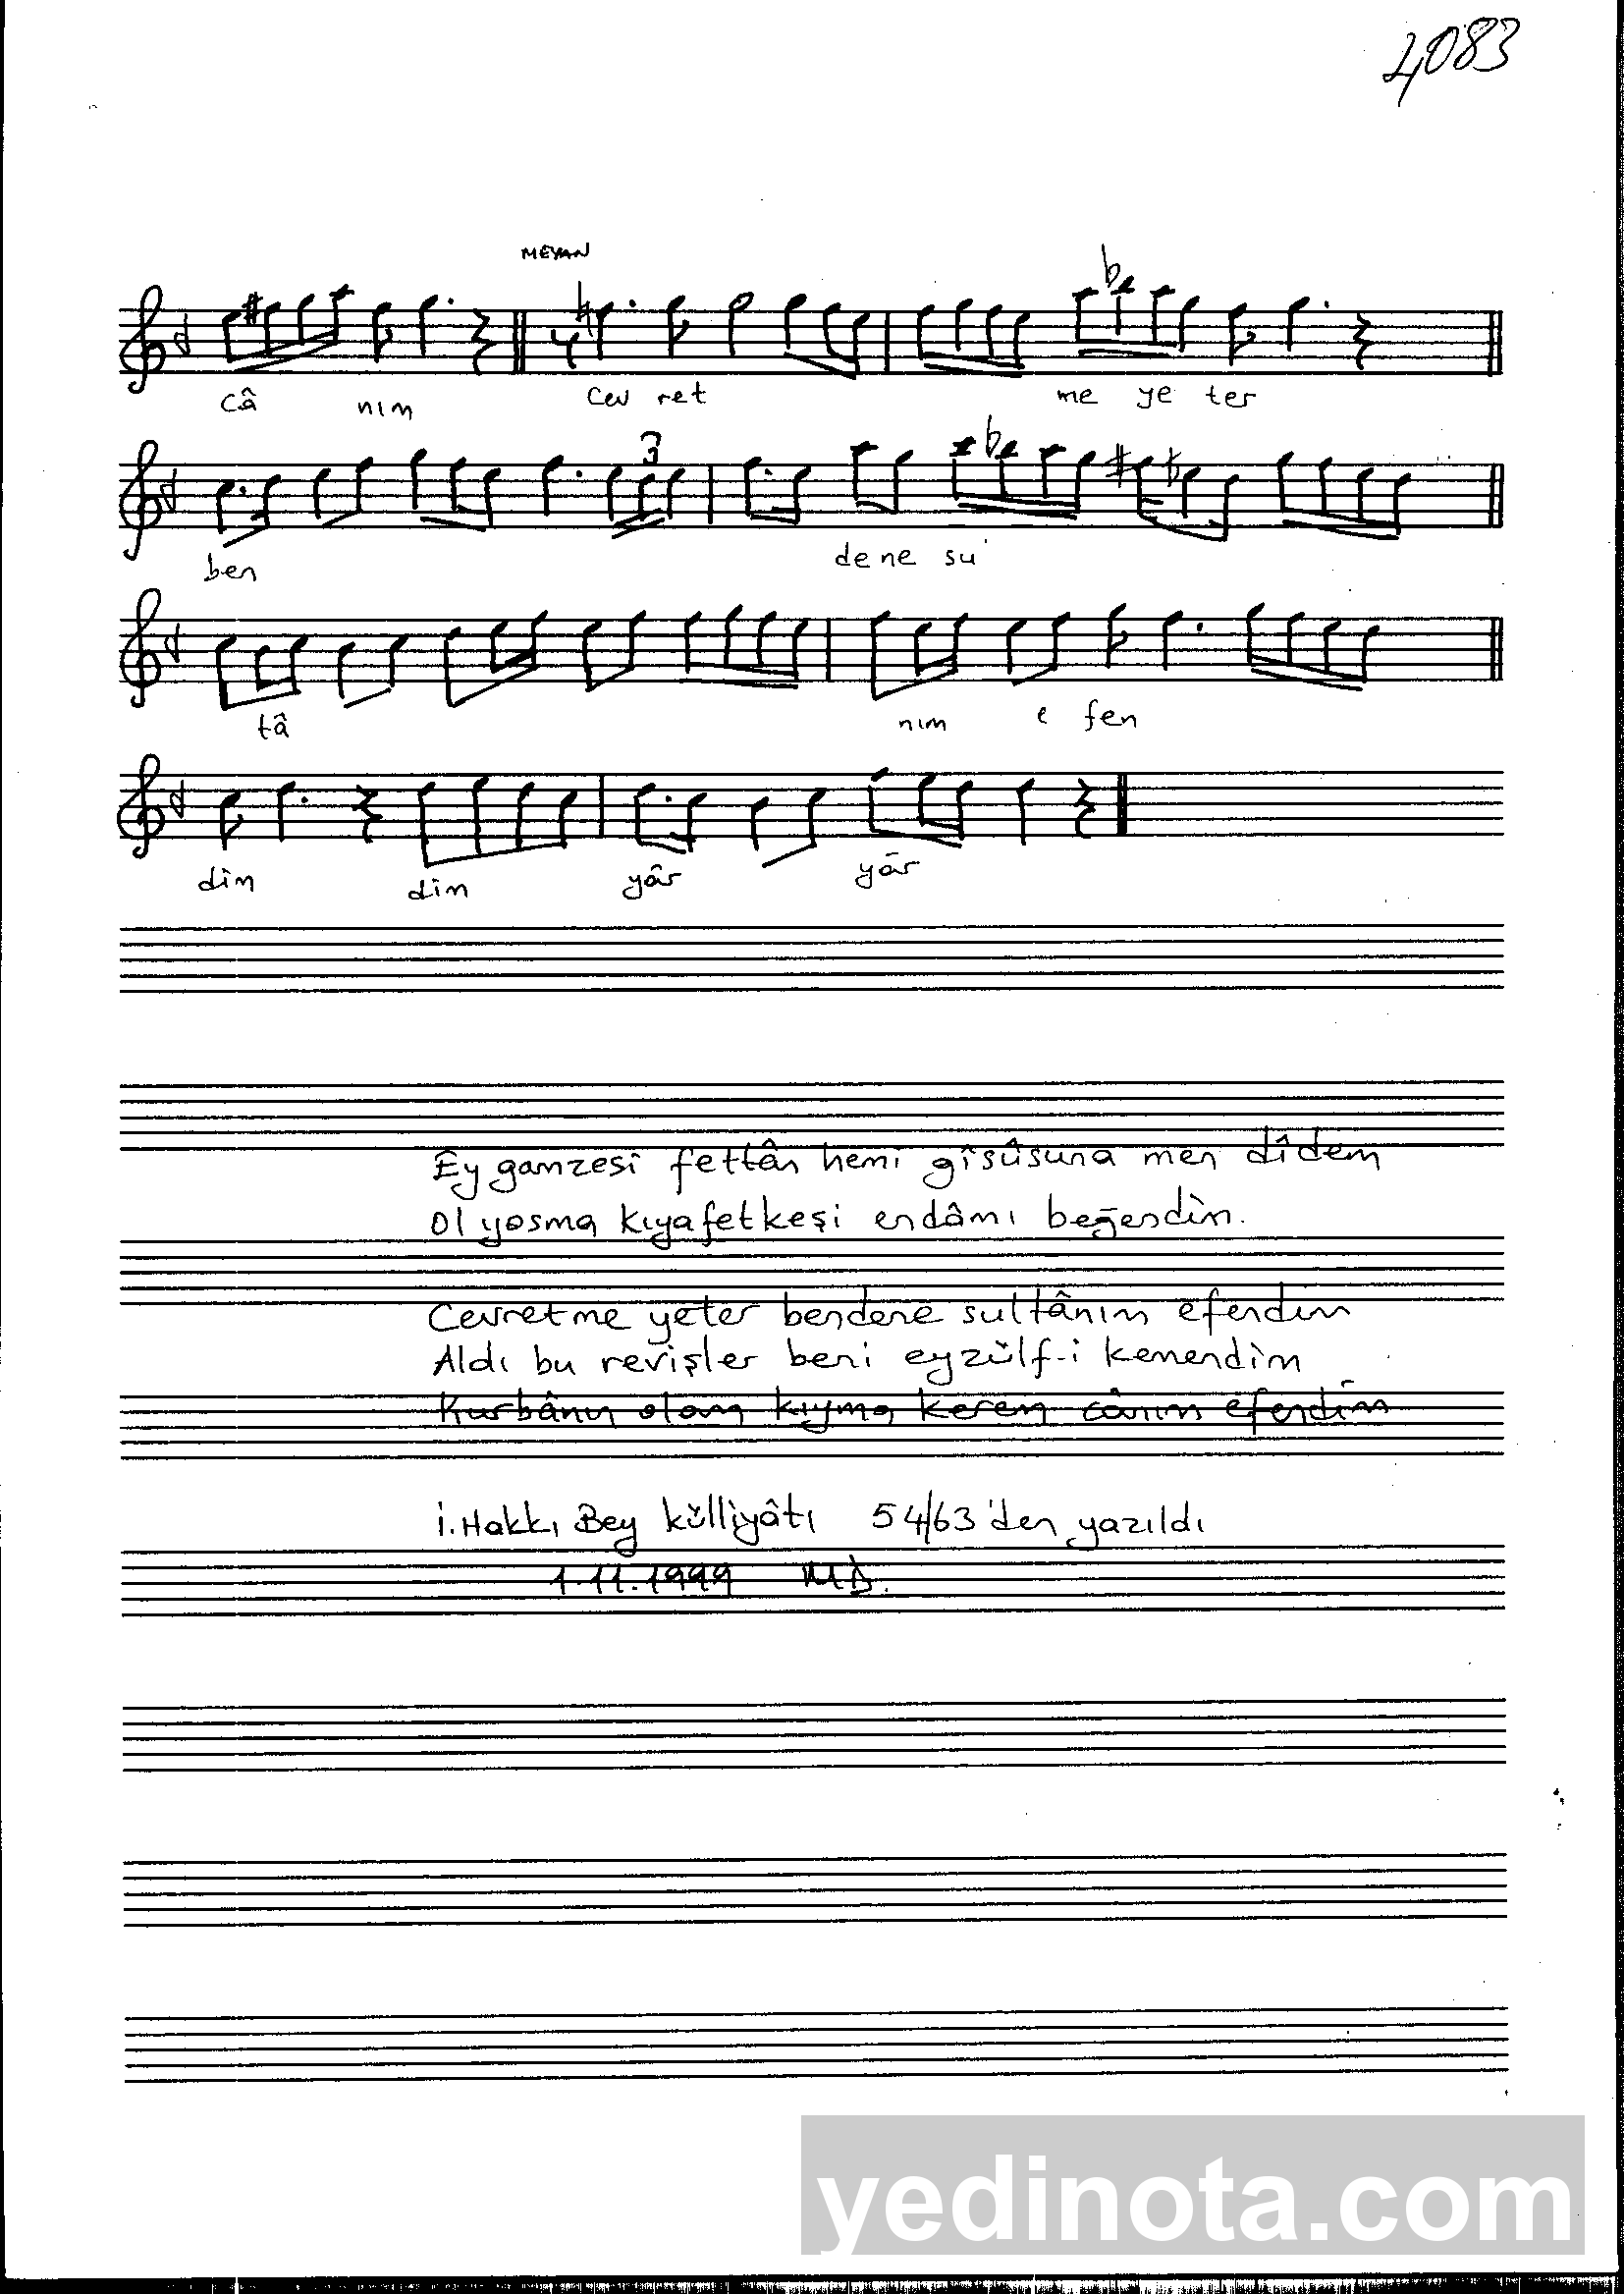 4083
MEYAN
câ nım cev ret me ye ter
3
ben de ne su
tâ nım e fen
dim dim yâr yâr
Ey gamzesi fettân hemi gîsûsuna men dîdem
Ol yosma kıyafetkeşi endâmı beğendim.
Cevretme yeter bendene sultânım efendim
Aldı bu revişler beni ey zülf-i kemendim
Kurbânın olam kıyma kerem cânım efendim
İ. Hakkı Bey külliyâtı 54/63'den yazıldı
1.11.1999 MD.
yedinota.com